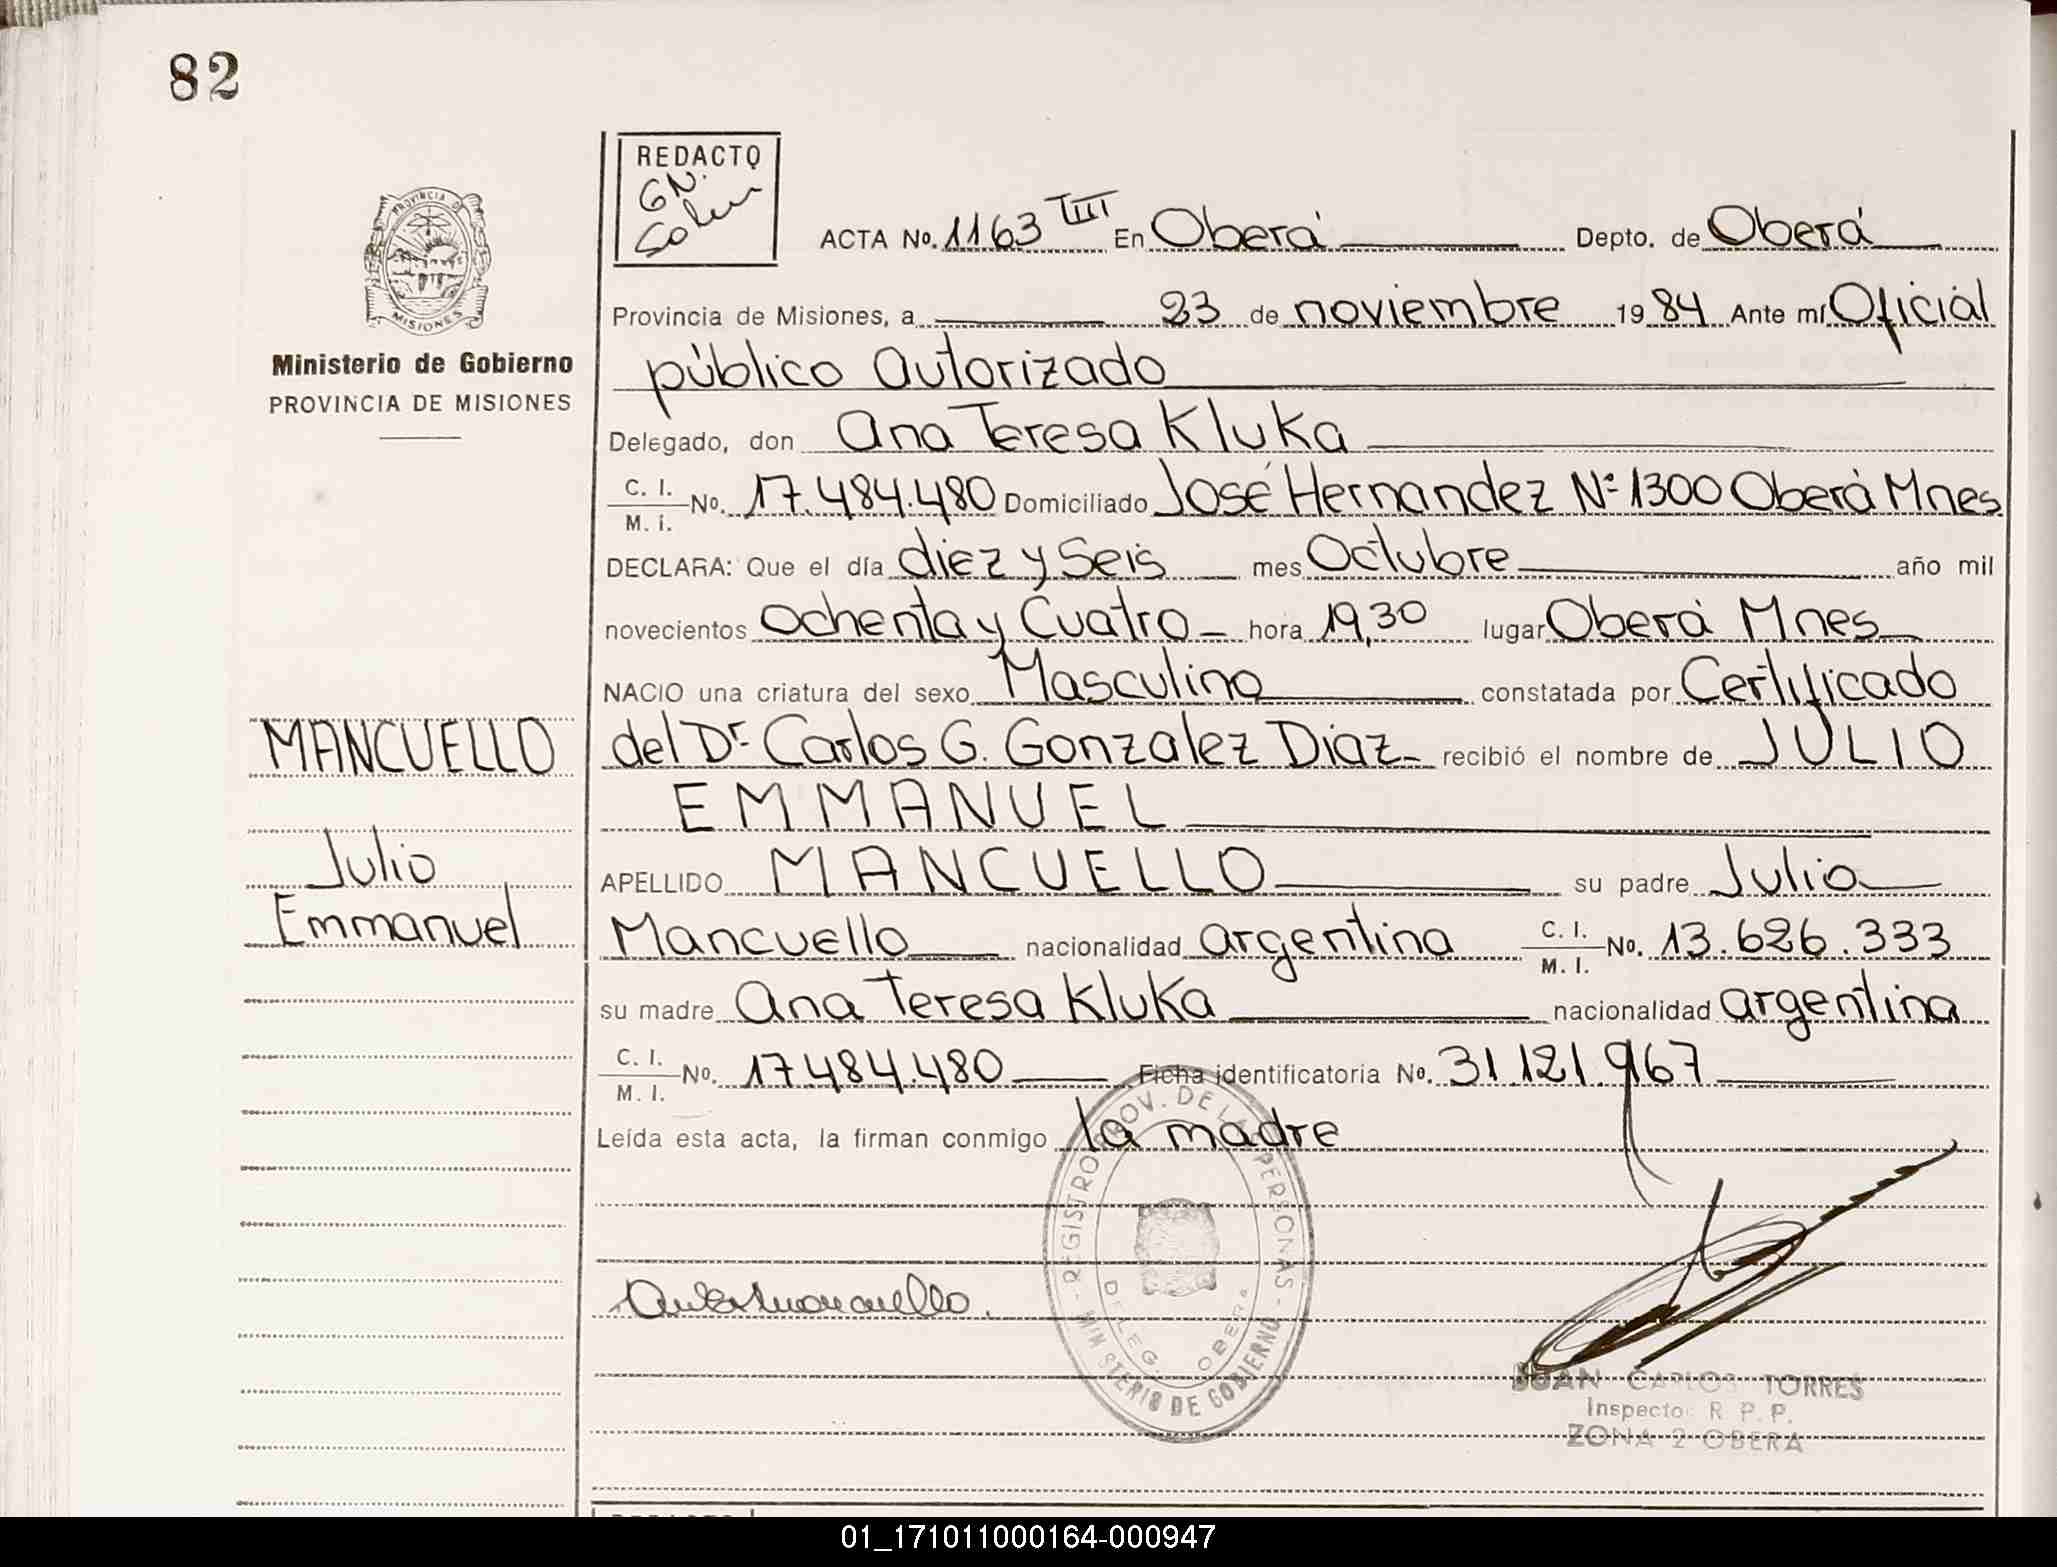 82
REDACTO
GN.
ACTA No. 1163 TIII En Oberá Depto. de Oberá
PROVINCIA DE MISIONES
Provincia de Misiones, a 23 de noviembre 1984 Ante mí Oficial
Ministerio de Gobierno
PROVINCIA DE MISIONES
público autorizado
Delegado, don Ana Teresa Kluka
C. I. / M. i. No. 17.484.480 Domiciliado José Hernandez Nº 1300 Oberá Mnes
DECLARA: Que el día diez y seis mes Octubre año mil
novecientos ochenta y Cuatro hora 19,30 lugar Oberá Mnes
NACIO una criatura del sexo Masculino constatada por Certificado
MANCUELLO
del Dr. Carlos G. Gonzalez Diaz recibió el nombre de JULIO
EMMANUEL
Julio
APELLIDO MANCUELLO su padre Julio
Emmanuel
Mancuello nacionalidad argentina C. I. / M. I. No. 13.626.333
su madre Ana Teresa Kluka nacionalidad argentina
C. I. / M. I. No. 17.484.480 Ficha identificatoria No. 31.121.967
Leída esta acta, la firman conmigo la madre
REGISTRO PROV. DE LAS PERSONAS - MINISTERIO DE GOBIERNO -
DELEG. OBERA
JUAN CARLOS TORRES
Inspector R. P. P.
ZONA 2 OBERA
01_171011000164-000947